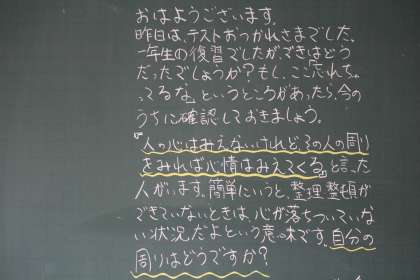 おはようございます。
昨日は、テストおつかれさまでした。
一年生の復習でしたが、できはどう
だったでしょうか？もし、ここ忘れち
ゃってるな。というところがあったら、今の
うちに確認しておきましょう。
『人の心はみえない、されど、その人の周り
をみれば心情はみえてくる』と言った
人がいます。簡単にいうと、整理整頓が
できていないときは、心が落ちついていな
い状況だよという意味です。自分の
周りはどうですか？